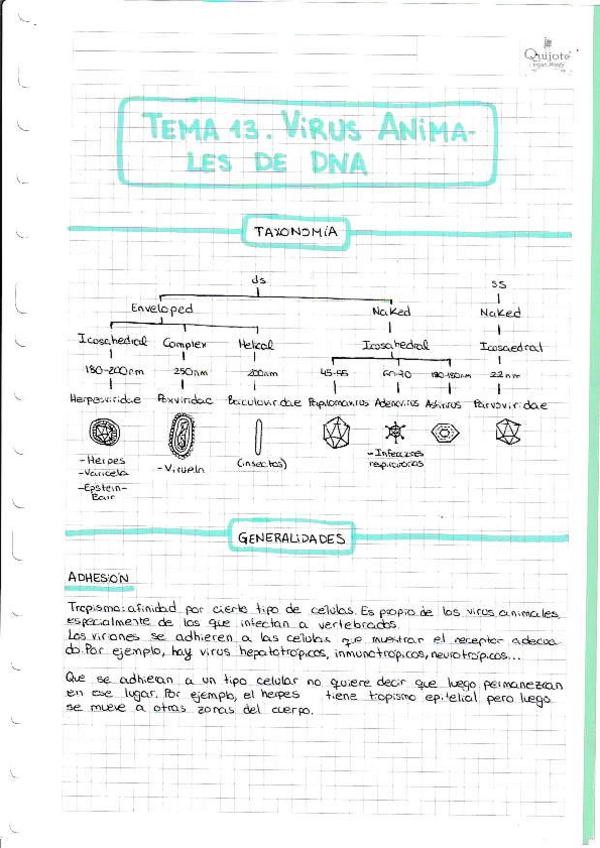 Quijote
TEMA 13. VIRUS ANIMA-
LES DE DNA
TAXONOMÍA
ds ss
Enveloped Naked Naked
Icosahedral Complex Helical Icosahedral Icosaedral
180-200nm 250nm 200nm 45-55 60-70 22nm
Herpesviridae Poxviridae Baculoviridae Papilomavirus Adenovirus Parvoviridae
-Herpes
-Varicela
-Epstein-
Barr
-Viruela
(insectos)
-Infecciones
respiratorias
GENERALIDADES
ADHESIÓN
Tropismo: afinidad por cierto tipo de celulas. Es propio de los virus animales,
especialmente de los que infectan a vertebrados.
Los viriones se adhieren a las celulas que muestran el receptor adecua-
do. Por ejemplo, hay virus hepatotrópicos, inmunotrópicos, neurotrópicos...
Que se adhieran a un tipo celular no quiere decir que luego permanezcan
en ese lugar. Por ejemplo, el herpes tiene tropismo epitelial pero luego
se mueve a otras zonas del cuerpo.